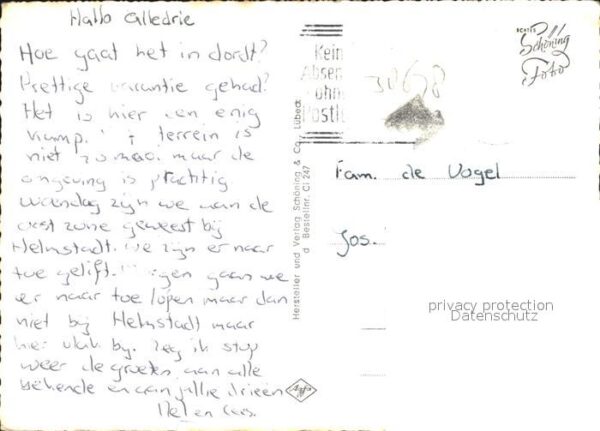 Hallo alledrie
Hoe gaat het in dordt?
Prettige vacantie gehad?
Het is hier een enig
kamp. terrein is
niet zo mooi maar de
omgeving is prachtig
zijn we aan de
oost zone geweest bij
Helmstadt. We zijn er naar
toe gelift. gaan we
er naar toe lopen maar dan
niet bij Helmstadt maar
hier vlak by. Zeg ik stop
weer de groeten aan alle
bekende en aan jullie drieën
Kein
Absen
ohn
Postl
30658
Schöning
Foto
Fam. de Vogel
Jos.
Hersteller und Verlag Schöning & Co., Lübeck
Bestellnr. Cl 247
privacy protection
Datenschutz